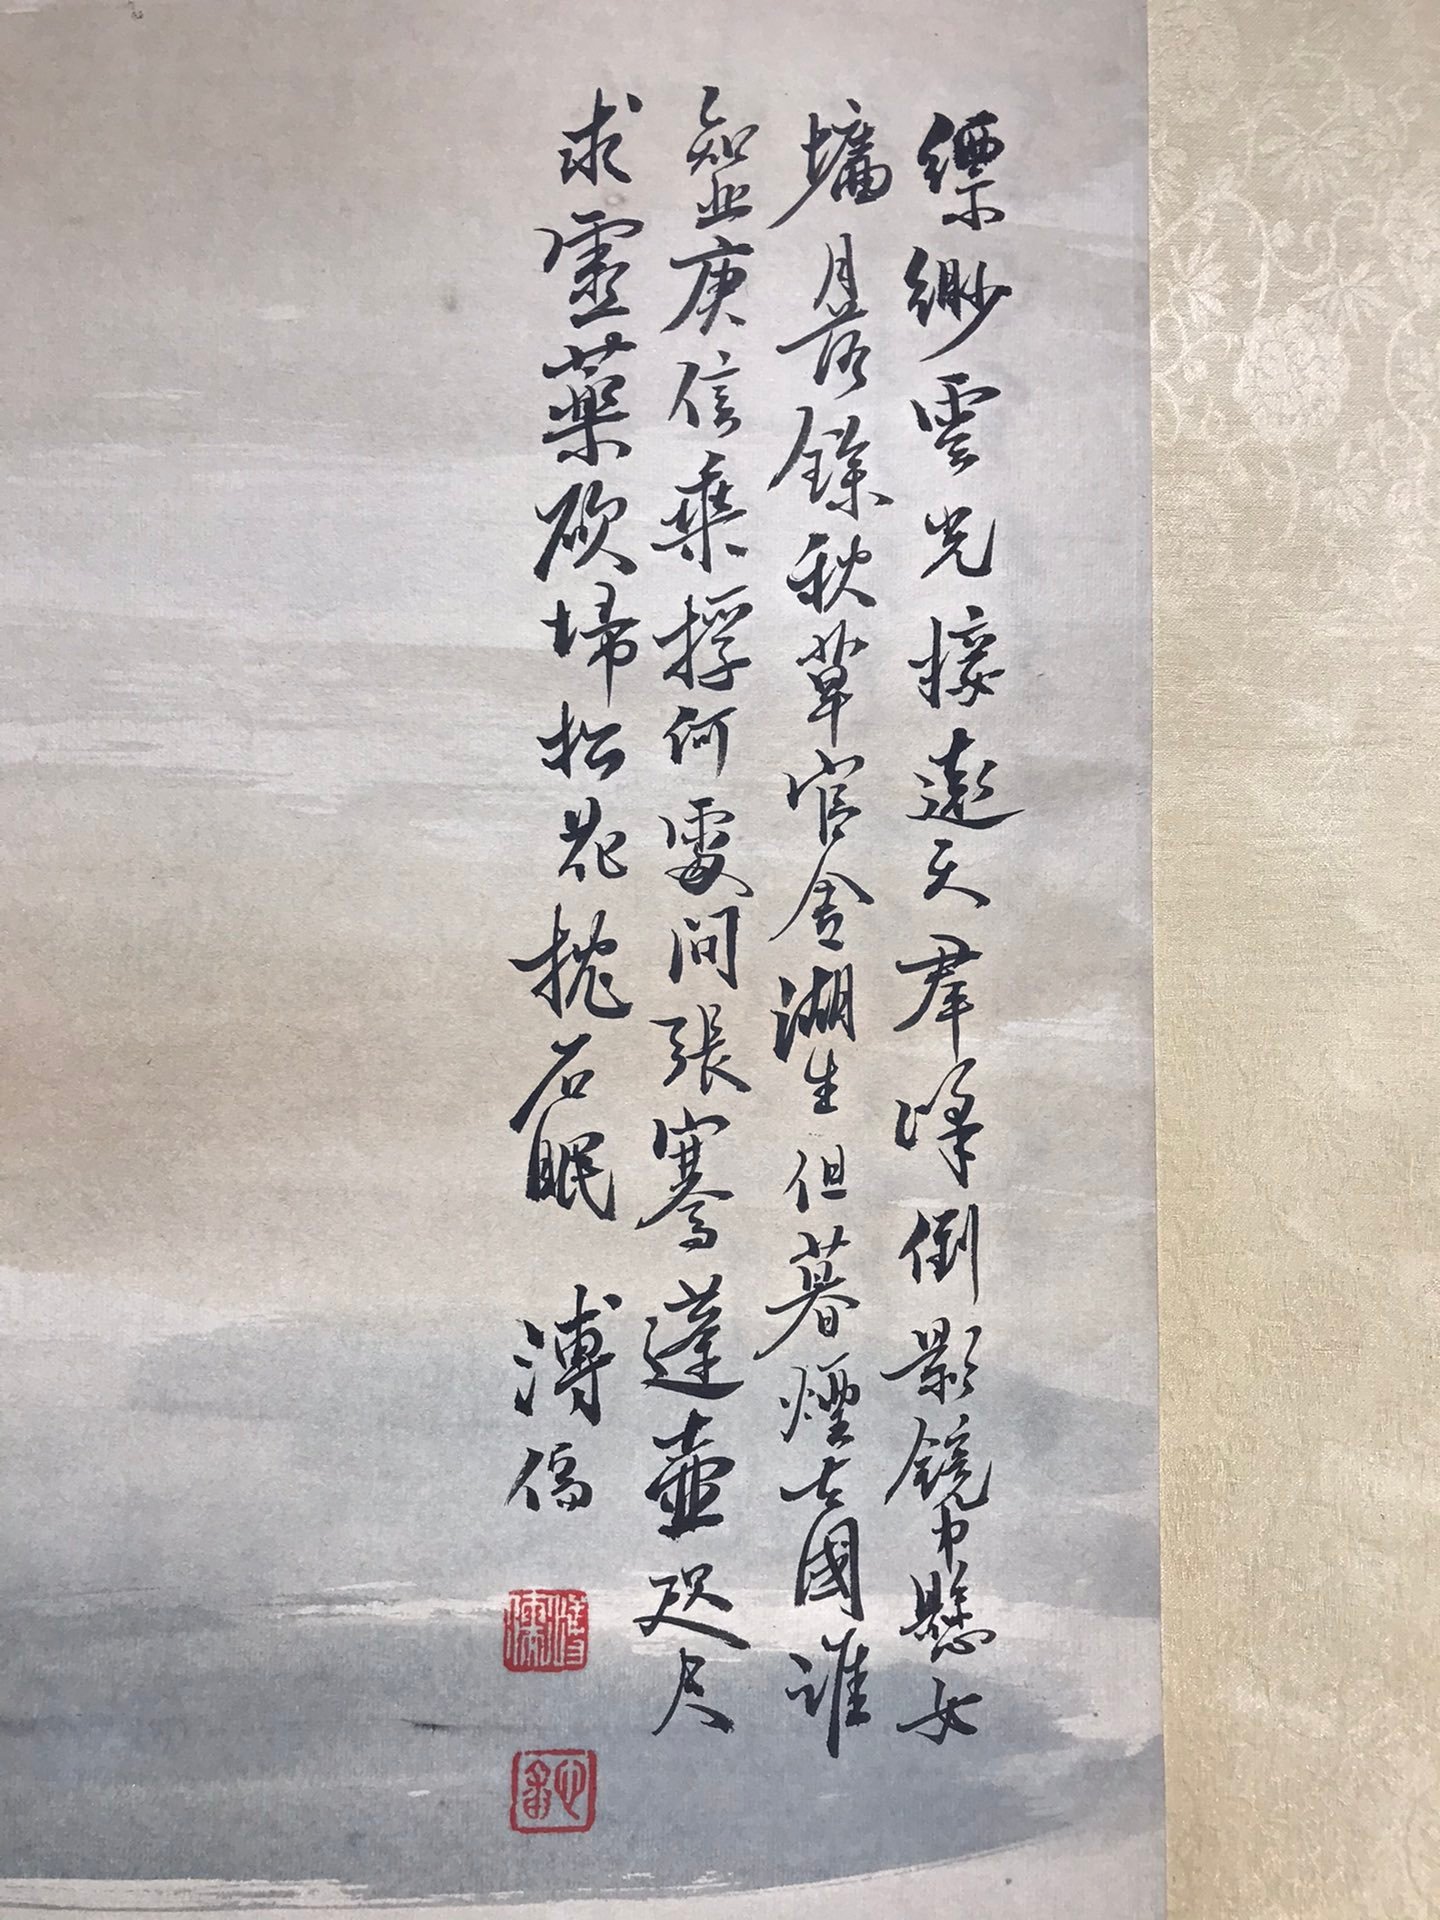 縹緲雲光接遠天羣峰倒影鏡中懸女
墻月落餘秋草官舍潮生但暮煙古國誰
知悲庾信乘桴何處問張騫蓬壺咫尺
求靈藥欲埽松花枕石眠
溥儒
溥儒
心畬